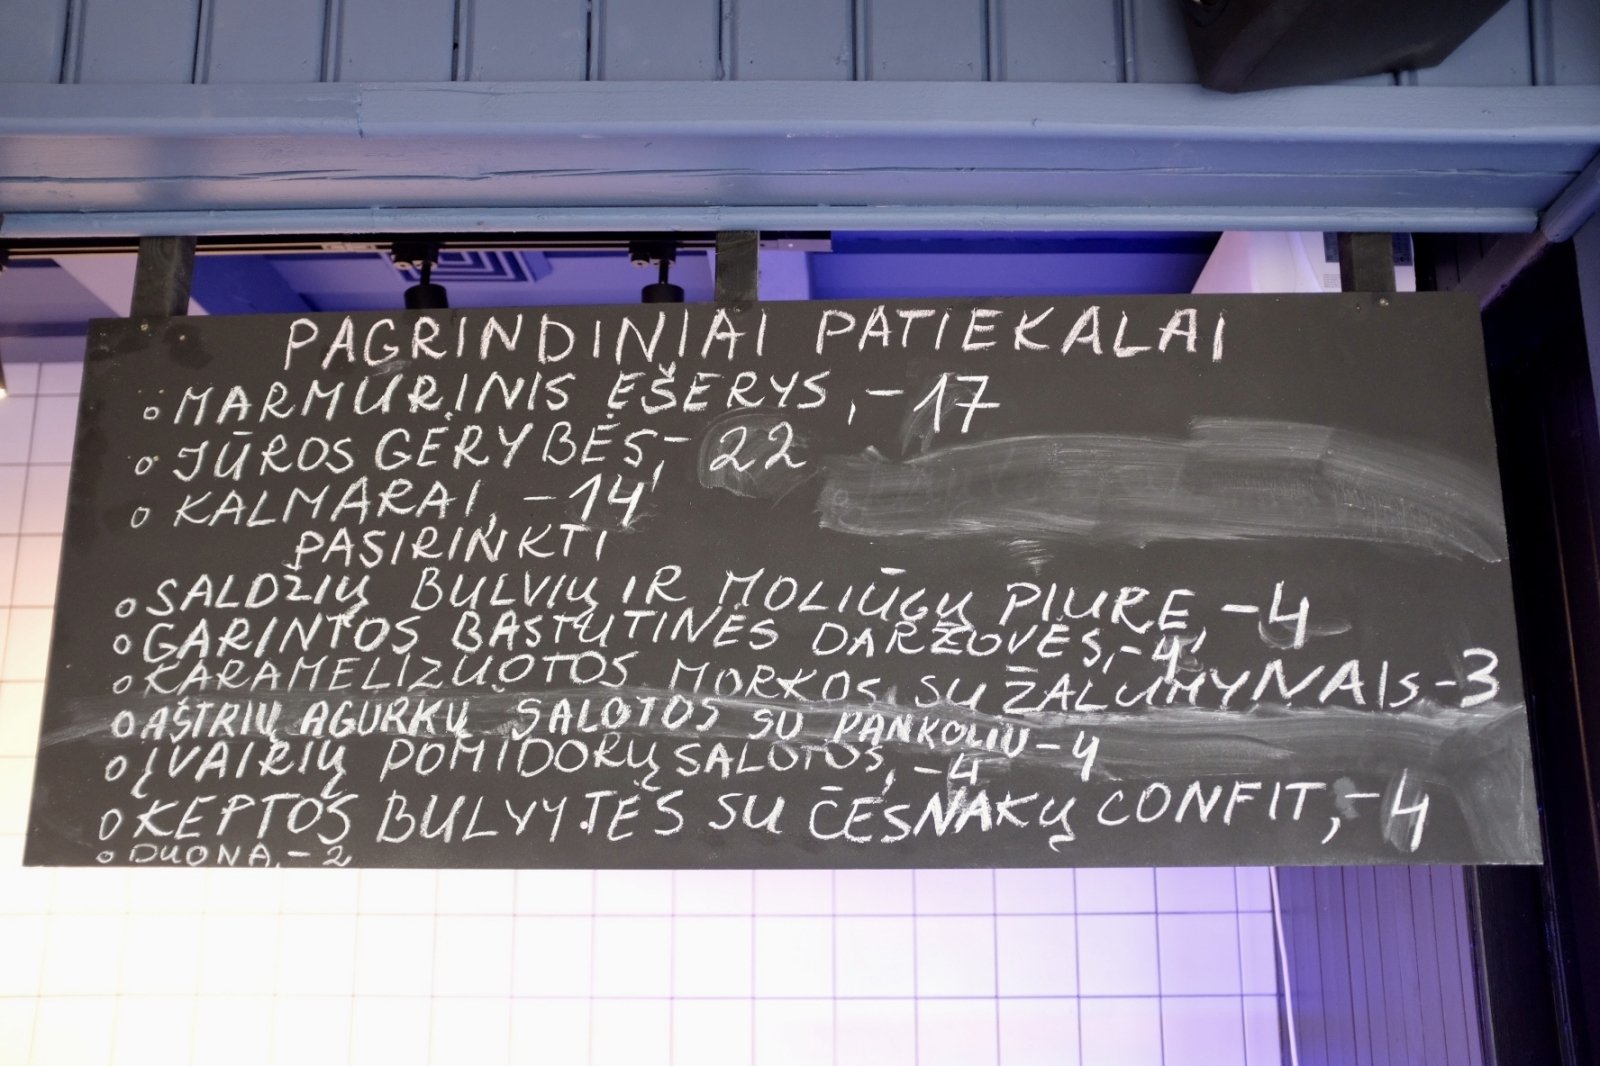 PAGRINDINIAI PATIEKALAI
MARMURINIS EŠERYS,-17
JŪROS GĖRYBĖS,-22
KALMARAI,-14
PASIRINKTI
SALDŽIŲ BULVIŲ IR MOLIŪGŲ PIURE-4
GARINTOS BASTUTINĖS DARŽOVĖS,-4
KARAMELIZUOTOS MORKOS SU ŽALUMYNAIS-3
AŠTRIŲ AGURKŲ SALOTOS SU PANKOLIU-4
ĮVAIRIŲ POMIDORŲ SALOTOS,-4
KEPTOS BULVYTĖS SU ČESNAKŲ CONFIT,-4
DUONA,-2